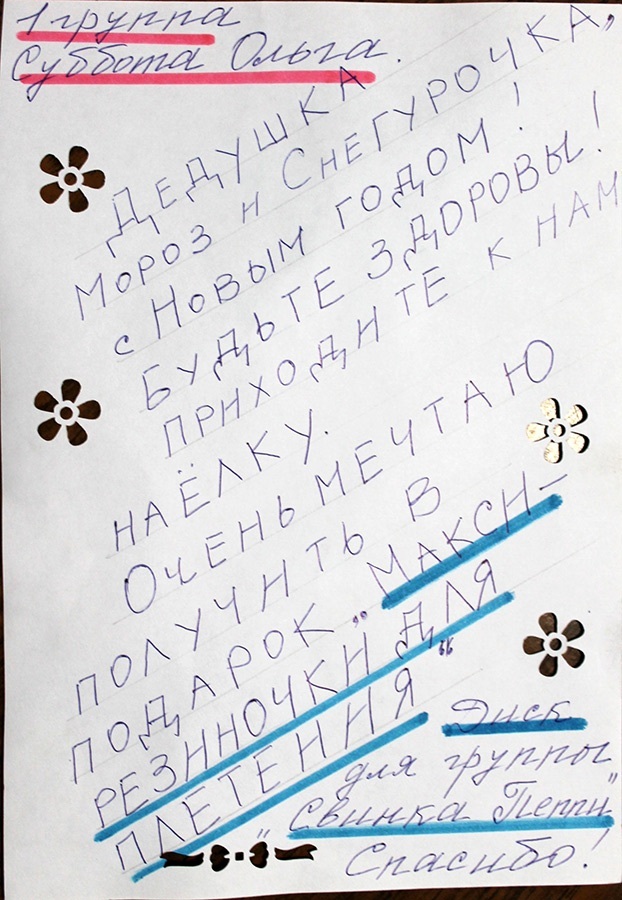 1 группа
Суббота Ольга.
ДЕДУШКА
МОРОЗ И СНЕГУРОЧКА,
С НОВЫМ ГОДОМ!
БУДЬТЕ ЗДОРОВЫ!
ПРИХОДИТЕ К НАМ
НА ЁЛКУ.
ОЧЕНЬ МЕЧТАЮ
ПОЛУЧИТЬ В
ПОДАРОК „МАКСИ-
РЕЗИНОЧКИ ДЛЯ
ПЛЕТЕНИЯ“
Диск
для группы
„Свинка Пеппи”
Спасибо!